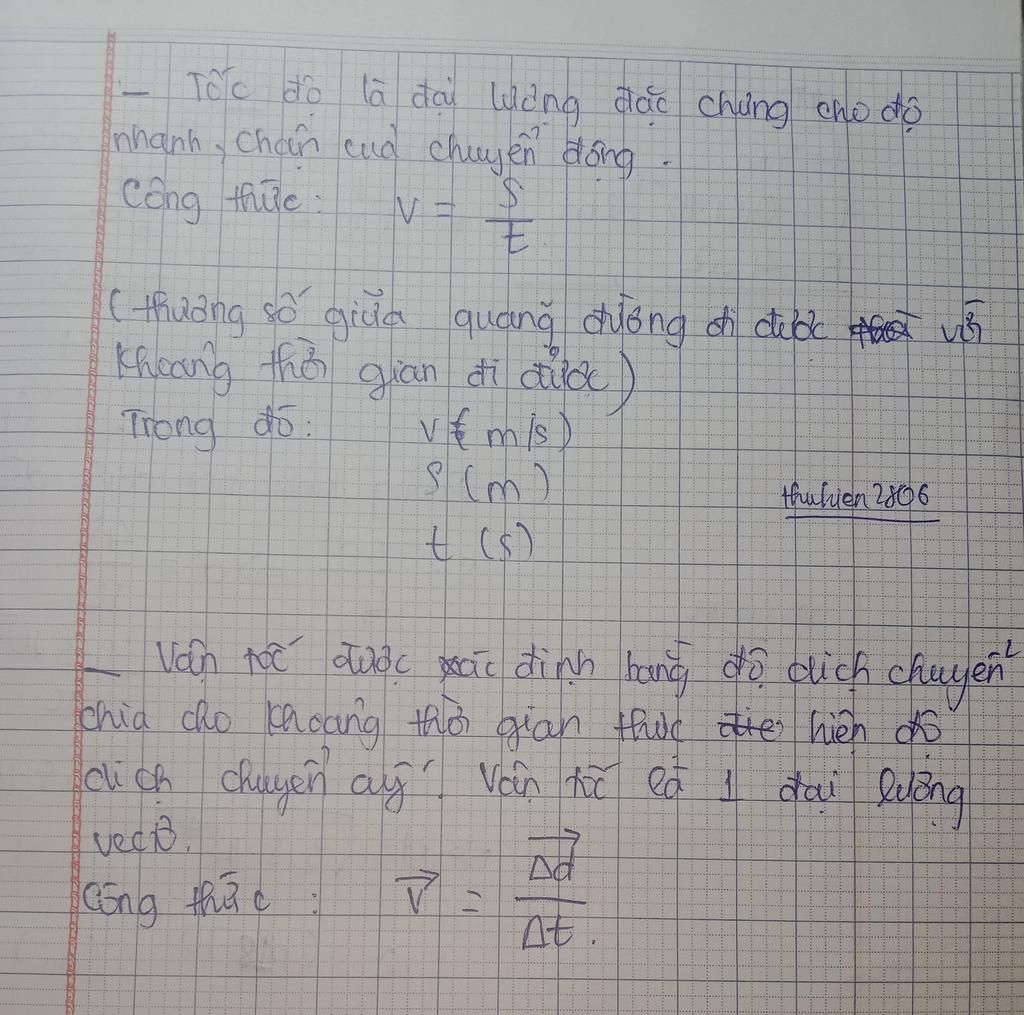 – Tốc độ là đại lượng đặc chưng cho độ
nhanh, chận của chuyển động.
Công thức: v = S/t
( thương số giữa quãng đường đi được với
khoảng thời gian đi được)
Trong đó: v( m/s)
S (m)
thuhien2806
t (s)
– Vận tốc được xác định bằng độ dịch chuyển
chia cho khoảng thời gian thực hiện độ
dịch chuyển ấy. Vận tốc là 1 đại lượng
vectơ.
Công thức : v⃗ = Δd⃗/Δt.